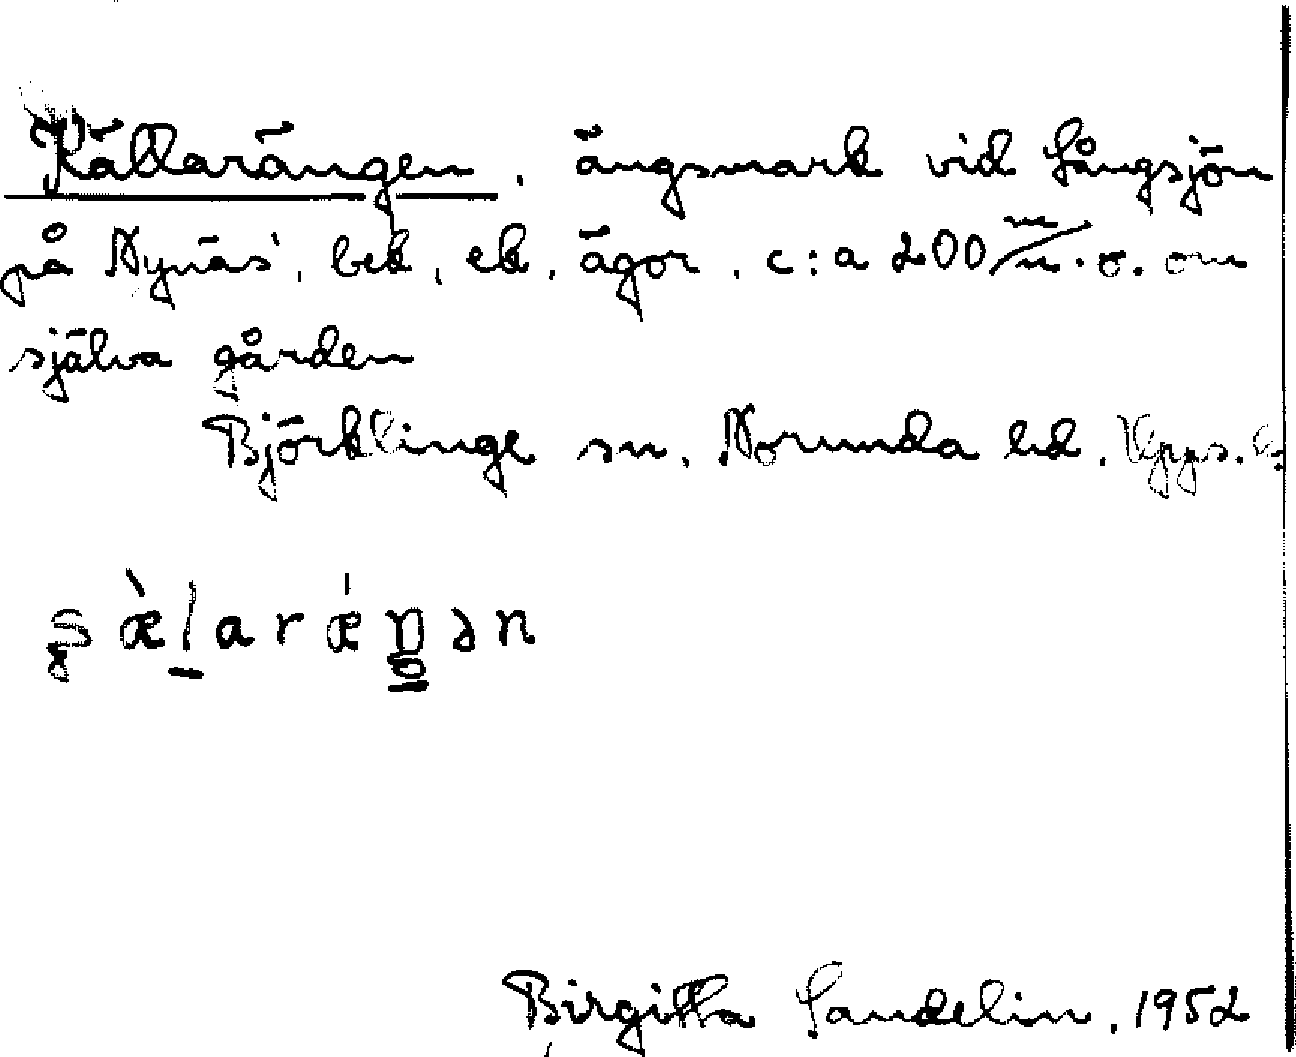 Källarängen, ängsmark vid Långsjön
på Nynäs', bek, ek, ägor, c:a 200 m n.ö. om
själva gården
Björklinge sn. Norunda hd. Upps. l.
Birgitta Sandelin, 1952